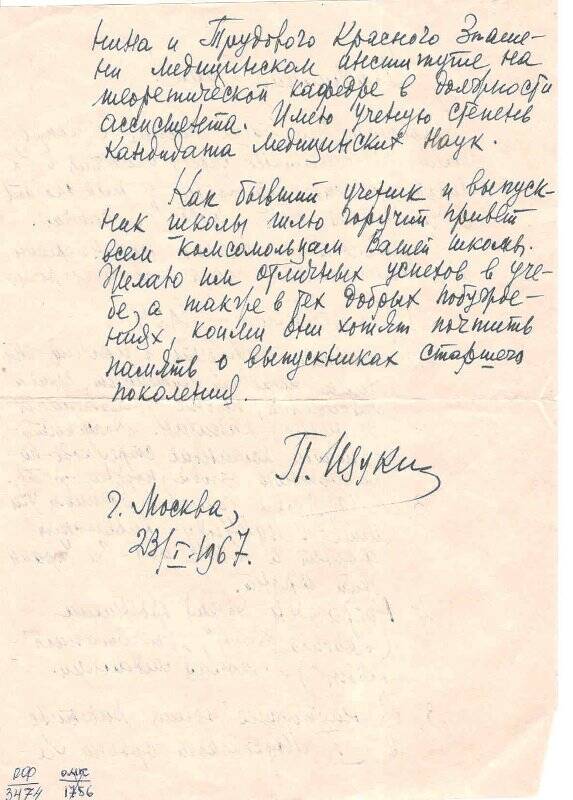 нина и Трудового Красного Знаме-
ни медицинском институте на
теоретической кафедре в должности
ассистента. Имею ученую степень
Кандидата Медицинских Наук.
Как бывший ученик и выпуск-
ник школы шлю горячий привет
всем комсомольцам Вашей школы.
Желаю им отличных успехов в уче-
бе, а также в тех добрых побужде-
ниях, коими они хотят почтить
память о выпускниках старшего
поколения.
П. Щукин
г. Москва,
23/I-1967.
РФ
3474
1756